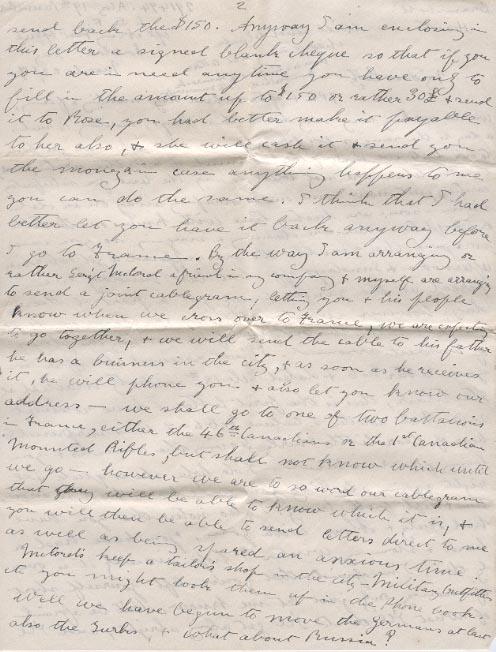 2
send back the $150. Anyway I am enclosing in
this letter a signed blank cheque so that if you
you are in need anytime you have only to
fill in the amount up to $150 or rather 30£ & send
it to Rose, you had better make it payable
to her also, & she will cash it & send you
the money in case anything happens to me
you can do the same. I think that I had
better let you have it back anyway before
I go to France. By the way I am arranging or
rather Sergt Motoral a friend in my company & myself are arranging
to send a joint cablegram, letting you & his people
know when we cross over to France, we are expecting
to go together, & we will send the cable to his father
he has a business in the city, & as soon as he receives
it, he will phone you & also let you know our
address — we shall go to one of two battalions
in France, either the 46th Canadians or the 1st Canadian
Mounted Rifles, but shall not know which until
we go — however we are to so word our cablegram
that they will be able to know which it is, &
you will then be able to send letters direct to me
as well as being spared an anxious time
keep a tailor's shop in the city Military Outfitters
it you might look them up in the phone book.
Well we have begun to move the Germans at last
also the Turks, & what about Russia?